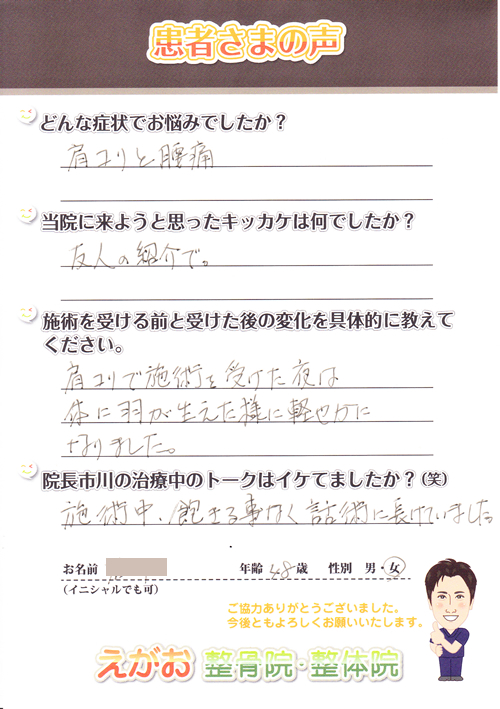 患者さまの声
どんな症状でお悩みでしたか？
肩コリと腰痛
当院に来ようと思ったキッカケは何でしたか？
友人の紹介で。
施術を受ける前と受けた後の変化を具体的に教えて
ください。
肩コリで施術を受けた夜は
体に羽が生えた様に軽やかに
なりました。
院長市川の治療中のトークはイケてましたか？（笑）
施術中、飽きる事なく話術に長けていました
お名前 年齢 48歳 性別 男・女
（イニシャルでも可）
ご協力ありがとうございました。
今後ともよろしくお願いいたします。
えがお 整骨院・整体院